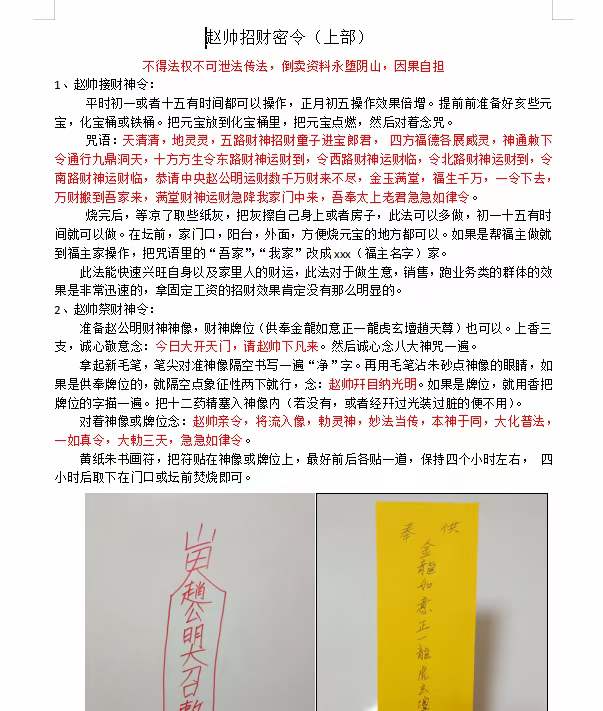 赵帅招财密令（上部）
不得法权不可泄法传法，倒卖资料永堕阴山，因果自担
1、赵帅接财神令：
平时初一或者十五有时间都可以操作，正月初五操作效果倍增。提前前准备好亥些元
宝，化宝桶或铁桶。把元宝放到化宝桶里，把元宝点燃，然后对着念咒。
咒语：天清清，地灵灵，五路财神招财童子进宝郎君， 四方福德各展威灵，神通敕下
令通行九鼎洞天，十方方生令东路财神运财到，令西路财神运财临，令北路财神运财到，令
南路财神运财临，恭请中央赵公明运财数千万财来不尽，金玉满堂，福生千万，一令下去，
万财搬到吾家来，满堂财神运财急降我家门中来，吾奉太上老君急急如律令。
烧完后，等凉了取些纸灰，把灰擦自己身上或者房子，此法可以多做，初一十五有时
间就可以做。在坛前，家门口，阳台，外面，方便烧元宝的地方都可以。如果是帮福主做就
到福主家操作，把咒语里的“吾家”，“我家”改成 xxx（福主名字）家。
此法能快速兴旺自身以及家里人的财运，此法对于做生意，销售，跑业务类的群体的效
果是非常迅速的，拿固定工资的招财效果肯定没有那么明显的。
2、赵帅祭财神令：
准备赵公明财神神像，财神牌位（供奉金龍如意正一龍虎玄壇趙天尊）也可以。上香三
支，诚心敬意念：今日大开天门，请赵帅下凡来。然后诚心念八大神咒一遍。
拿起新毛笔，笔尖对准神像隔空书写一遍“净”字。再用毛笔沾朱砂点神像的眼睛，如
果是供奉牌位的，就隔空点象征性两下就行，念：赵帅开目纳光明。如果是牌位，就用香把
牌位的字描一遍。把十二药精塞入神像内（若没有，或者经开过光装过脏的便不用）。
对着神像或牌位念：赵帅亲令，将流入像，勅灵神，妙法当传，本神于同，大化普法，
一如真令，大勅三天，急急如律令。
黄纸朱书画符，把符贴在神像或牌位上，最好前后各贴一道，保持四个小时左右， 四
小时后取下在门口或坛前焚烧即可。
趙公明大召敕
奉 供
金龍如意正一龍虎玄壇